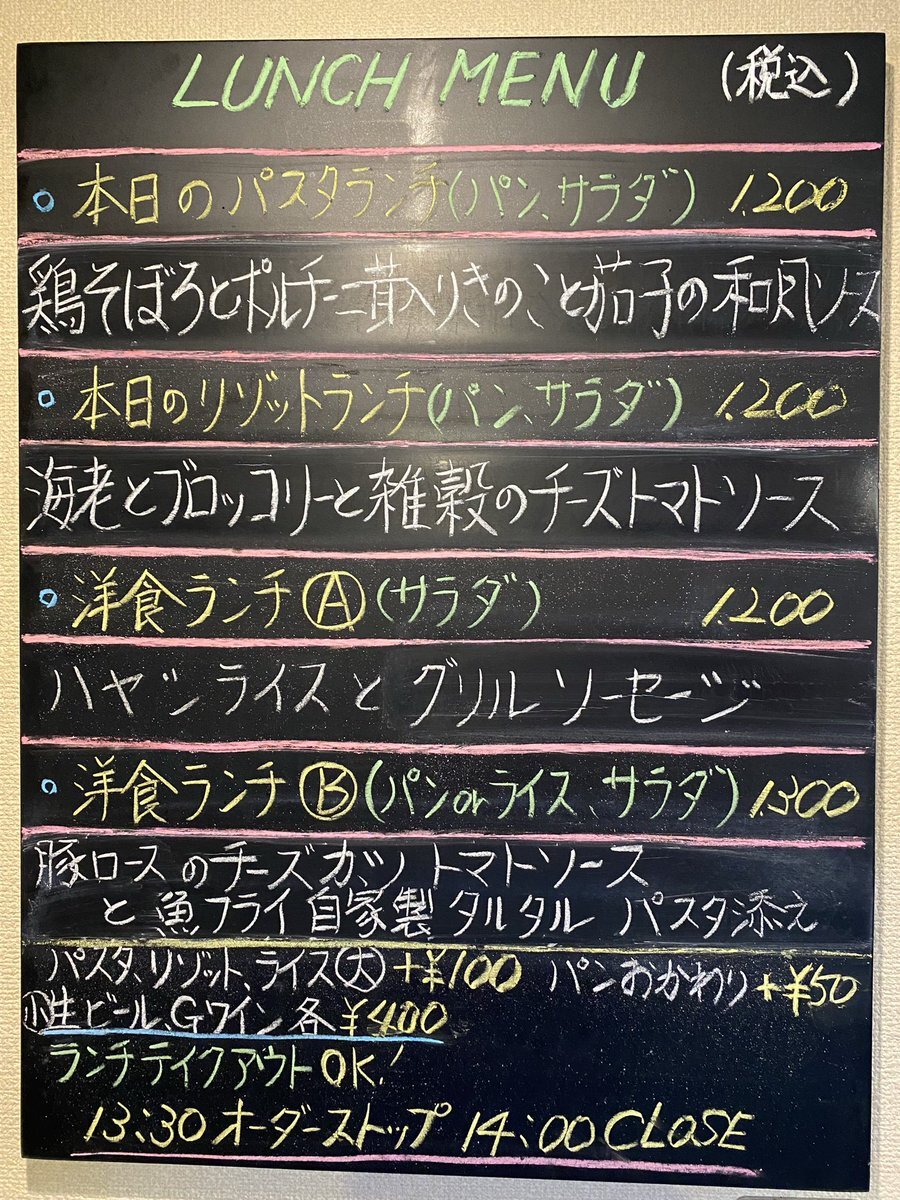 LUNCH MENU (税込)
本日のパスタランチ(パン、サラダ) 1.200
鶏そぼろとポルチーニ茸入りきのこと茄子の和風ソース
本日のリゾットランチ(パン、サラダ) 1.200
海老とブロッコリーと雑穀のチーズトマトソース
洋食ランチⒶ(サラダ) 1.200
ハヤシライスとグリルソーセージ
洋食ランチⒷ(パンorライス、サラダ) 1.300
豚ロースのチーズカツトマトソース
と魚フライ自家製タルタル パスタ添え
パスタ、リゾット、ライス大 +¥100 パンおかわり+¥50
小生ビール、Gワイン各¥400
ランチテイクアウトOK!
13:30オーダーストップ 14:00 CLOSE